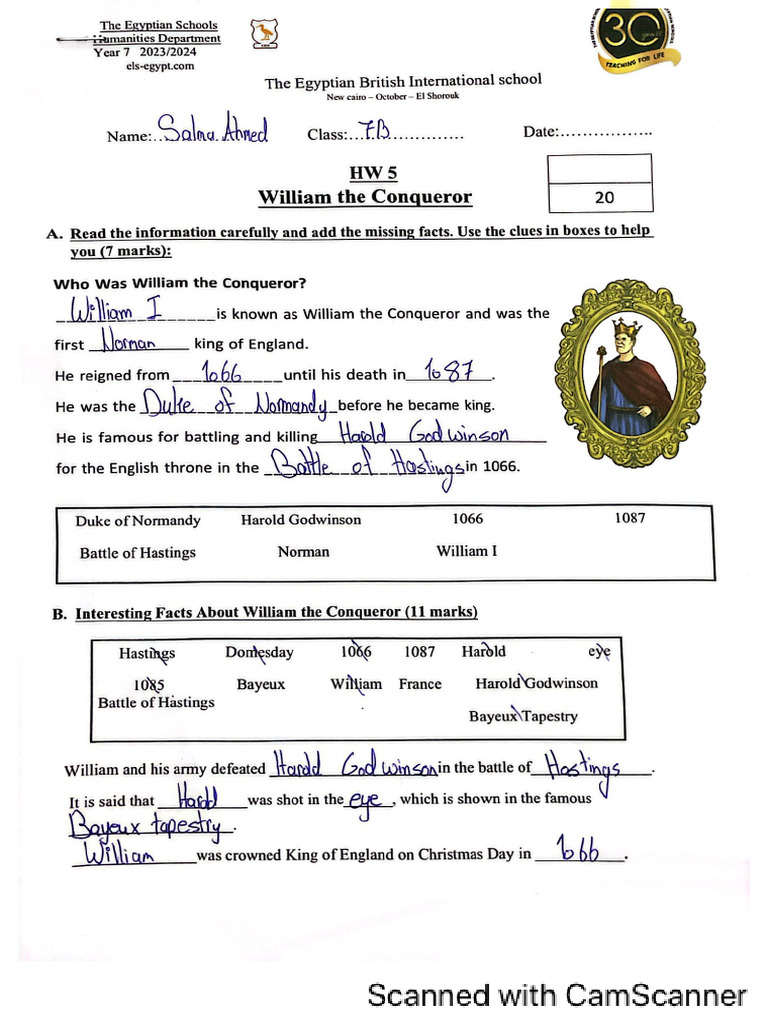 The Egyptian Schools
Humanities Department
Year 7 2023/2024
els-egypt.com
30
years
THE EGYPTIAN SCHOOLS
TEACHING FOR LIFE
The Egyptian British International school
New cairo – October – El Shorouk
Name:...Salma Ahmed Class:...7B............. Date:.................
HW 5
William the Conqueror
20
A. Read the information carefully and add the missing facts. Use the clues in boxes to help
you (7 marks):
Who Was William the Conqueror?
William I is known as William the Conqueror and was the
first Norman king of England.
He reigned from 1066 until his death in 1087.
He was the Duke of Normandy before he became king.
He is famous for battling and killing Harold Godwinson
for the English throne in the Battle of Hastings in 1066.
Duke of Normandy Harold Godwinson 1066 1087
Battle of Hastings Norman William I
B. Interesting Facts About William the Conqueror (11 marks)
Hastings Domesday 1066 1087 Harold eye
1085 Bayeux William France Harold Godwinson
Battle of Hastings
Bayeux Tapestry
William and his army defeated Harold Godwinson in the battle of Hastings.
It is said that Harold was shot in the eye, which is shown in the famous
Bayeux tapestry.
William was crowned King of England on Christmas Day in 1066.
Scanned with CamScanner